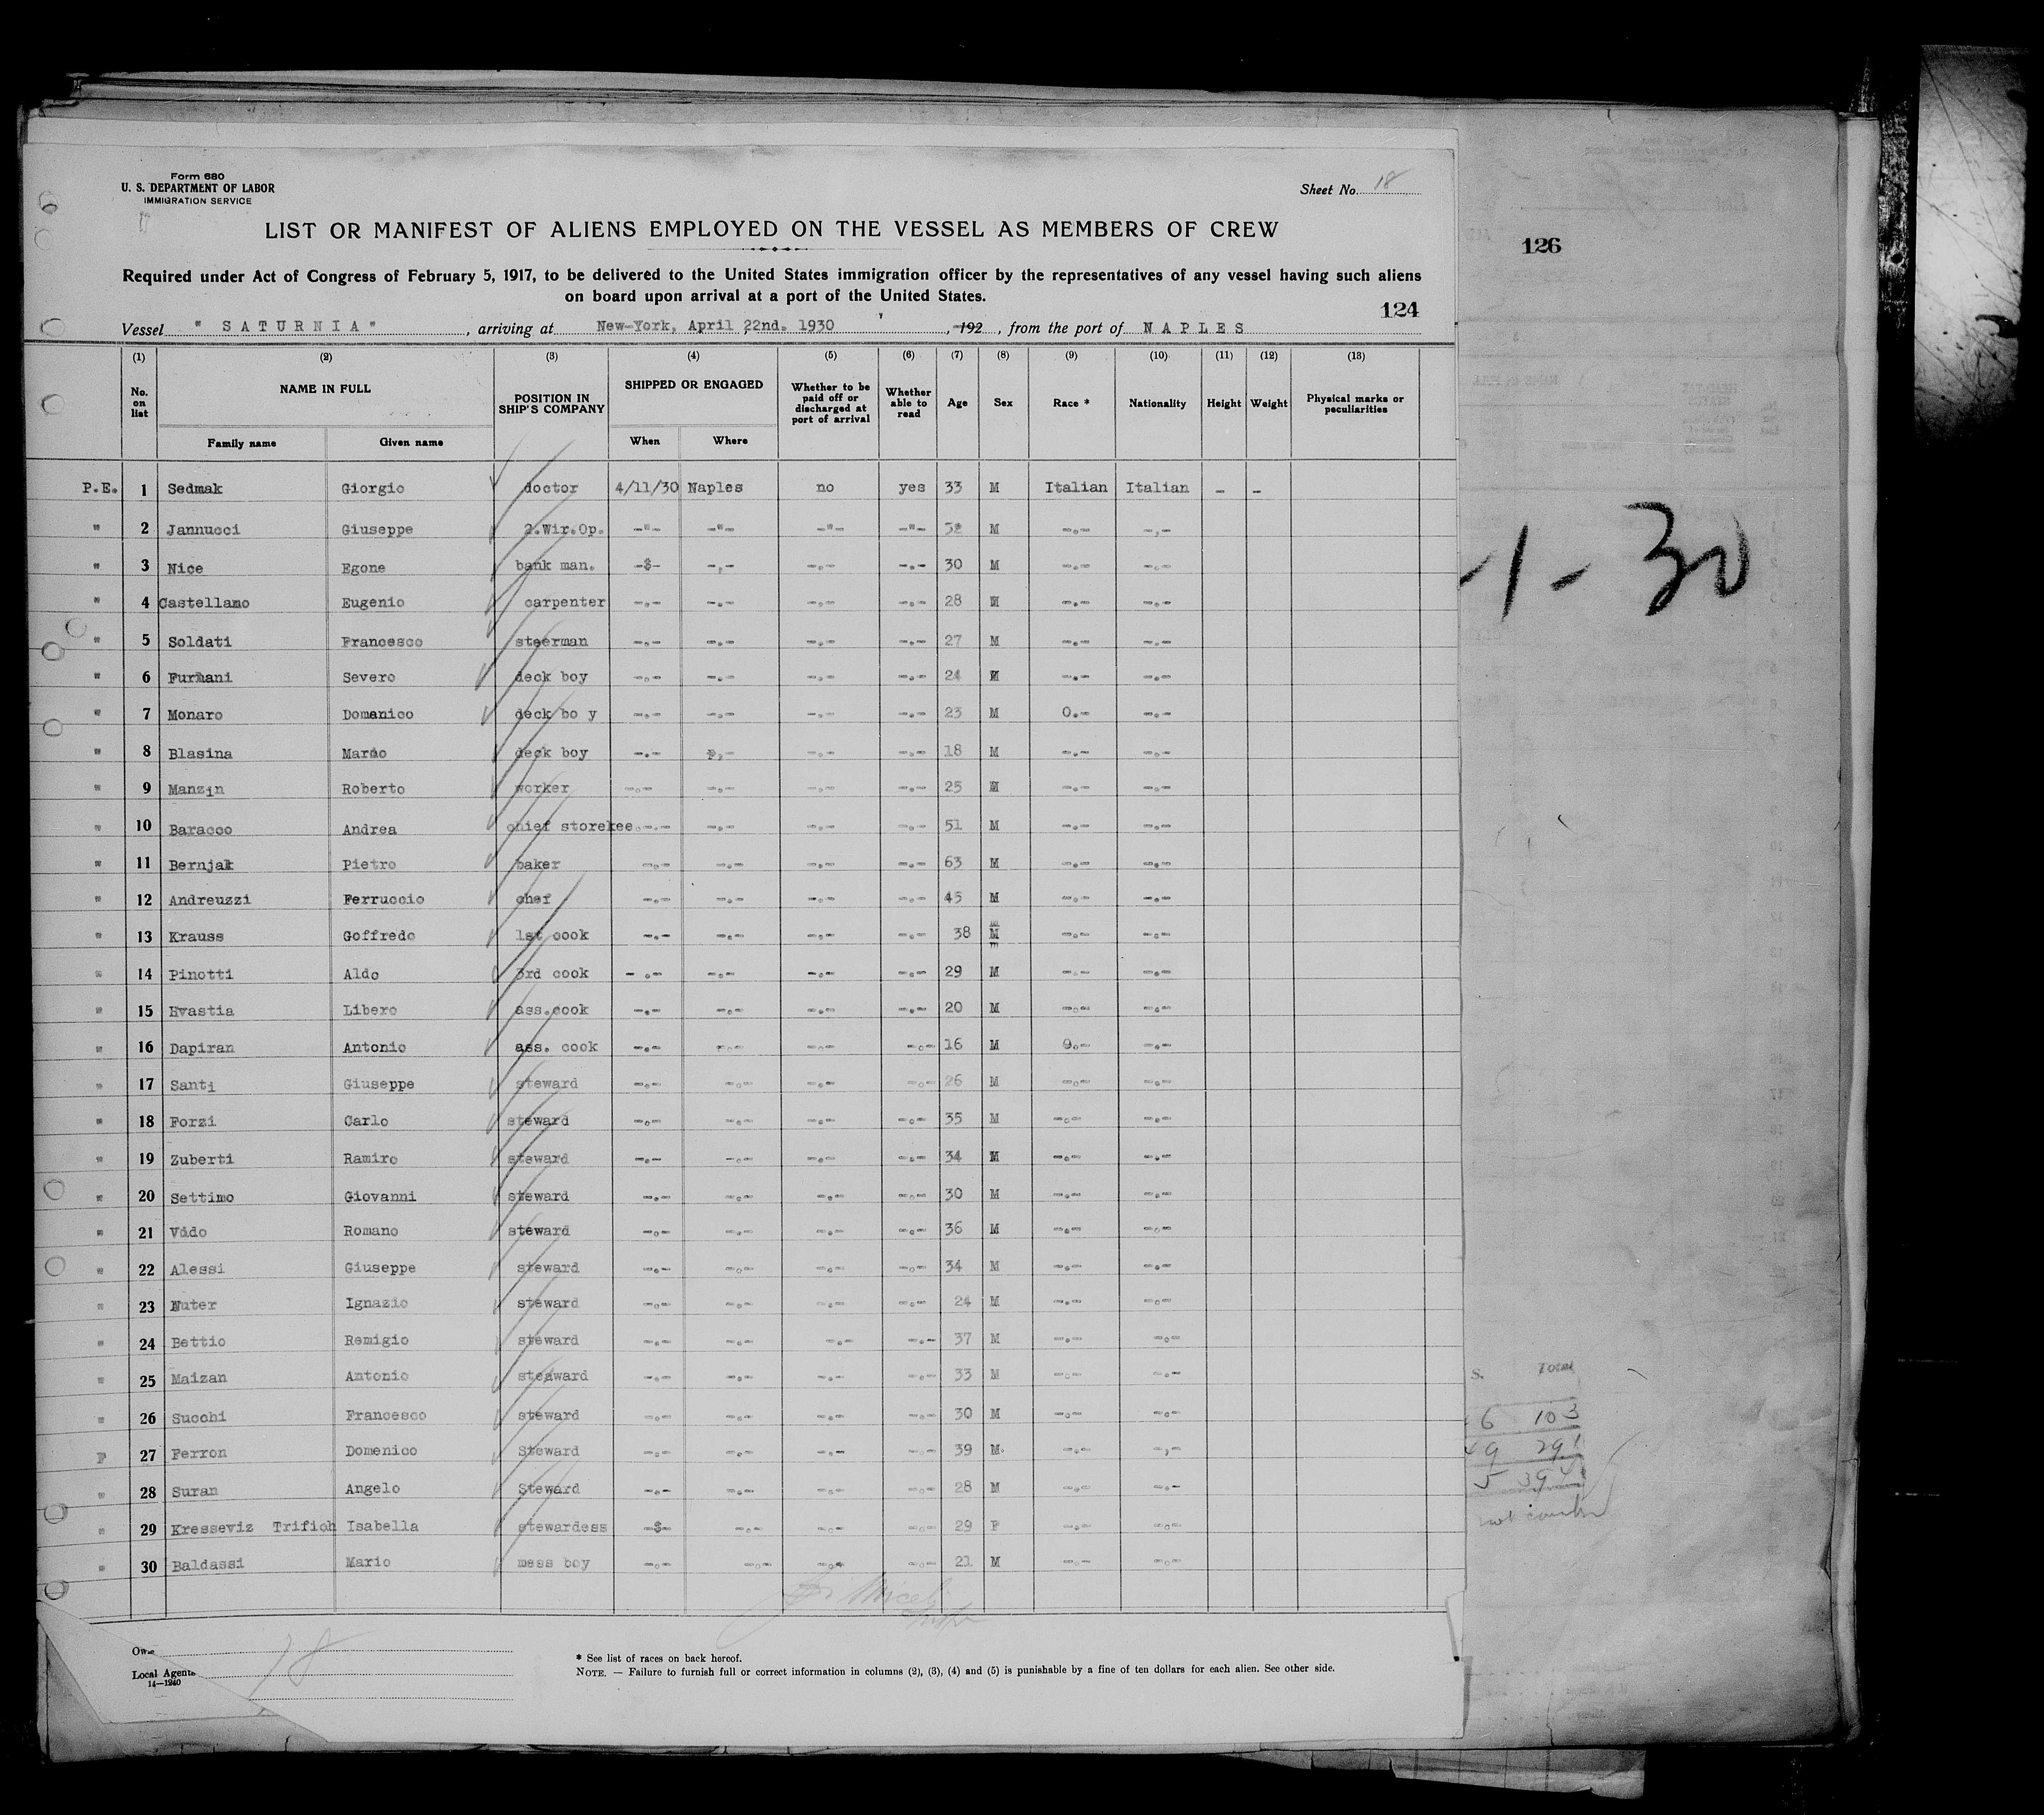 Form 680
U. S. DEPARTMENT OF LABOR
IMMIGRATION SERVICE
Sheet No. 18
LIST OR MANIFEST OF ALIENS EMPLOYED ON THE VESSEL AS MEMBERS OF CREW
Required under Act of Congress of February 5, 1917, to be delivered to the United States immigration officer by the representatives of any vessel having such aliens
on board upon arrival at a port of the United States.
124
Vessel " SATURNIA " , arriving at New-York, April 22nd. 1930 , 192 , from the port of NAPLES
(1) (2) (3) (4) (5) (6) (7) (8) (9) (10) (11) (12) (13)
No. on list NAME IN FULL POSITION IN SHIP'S COMPANY SHIPPED OR ENGAGED Whether to be paid off or discharged at port of arrival Whether able to read Age Sex Race * Nationality Height Weight Physical marks or peculiarities
Family name Given name When Where
P.E. 1 Sedmak Giorgio doctor 4/11/30 Naples no yes 33 M Italian Italian - -
" 2 Jannucci Giuseppe 2.Wir.Op. -"- -"- -"- -"- 32 M -.- -,-
" 3 Nice Egone bank man. -$- -,- -.- -.- 30 M -.- -.-
" 4 Castellamo Eugenio carpenter -.- -.- -.- -.- 28 M -.- -.-
" 5 Soldati Francesco steerman -.- -.- -.- -.- 27 M -.- -.-
" 6 Furmani Severo deck boy -.- -.- -.- -.- 24 M -.- -.-
" 7 Monaro Domanico deck bo y -.- -.- -.- -.- 23 M 0.- -.-
" 8 Blasina Mario deck boy -.- p,- -.- -.- 18 M -.- -.-
" 9 Manzin Roberto worker -.- -.- -.- -.- 25 M -.- -.-
" 10 Baracco Andrea chief storekee. -.- -.- -.- -.- 51 M -.- -.-
" 11 Bernjak Pietro baker -.- -.- -.- -.- 63 M -.- -.-
" 12 Andreuzzi Ferruccio chef -.- -.- -.- -.- 45 M -.- -.-
" 13 Krauss Goffredo 1st cook -.- -.- -.- -.- 38 M -.- -.-
" 14 Pinotti Aldo 3rd cook -.- -.- -.- -.- 29 M -.- -.-
" 15 Hvastia Libero ass.cook -.- -.- -.- -.- 20 M -.- -.-
" 16 Dapiran Antonio ass. cook -.- -.- -.- -.- 16 M 9.- -.-
" 17 Santi Giuseppe steward -.- -.- -.- -.- 26 M -.- -.-
" 18 Forzi Carlo steward -.- -.- -.- -.- 35 M -.- -.-
" 19 Zuberti Ramiro steward -.- -.- -.- -.- 34 M -.- -.-
" 20 Settimo Giovanni steward -.- -.- -.- -.- 30 M -.- -.-
" 21 Vido Romano steward -.- -.- -.- -.- 36 M -.- -.-
" 22 Alessi Giuseppe steward -.- -.- -.- -.- 34 M -.- -.-
" 23 Nuter Ignazio steward -.- -.- -.- -.- 24 M -.- -.-
" 24 Bettio Remigio steward -.- -.- -.- -.- 37 M -.- -.-
" 25 Maizan Antonio steaward -.- -.- -.- -.- 33 M -.- -.-
" 26 Succhi Francesco steward -.- -.- -.- -.- 30 M -.- -.-
27 Ferron Domenico Steward -.- -.- -.- -.- 39 M. -.- -,-
" 28 Suran Angelo Steward -.- -.- -.- -.- 28 M -.- -.-
" 29 Kresseviz Trifich Isabella stewardess -$- -.- -.- -.- 29 F -.- -.-
" 30 Baldassi Mario mess boy -.- -.- -.- -.- 21 M -.- -.-
Local Agents
14—1240
18
* See list of races on back hereof.
NOTE. — Failure to furnish full or correct information in columns (2), (3), (4) and (5) is punishable by a fine of ten dollars for each alien. See other side.
126
-1-30
S. Total
6 103
49 291
5 394